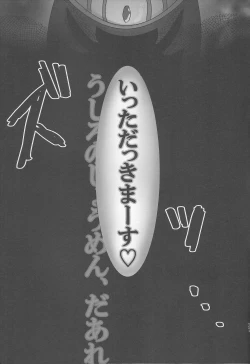 いっただっきまーす♡
うしろのしょうめん、だあれ
ズズッ...